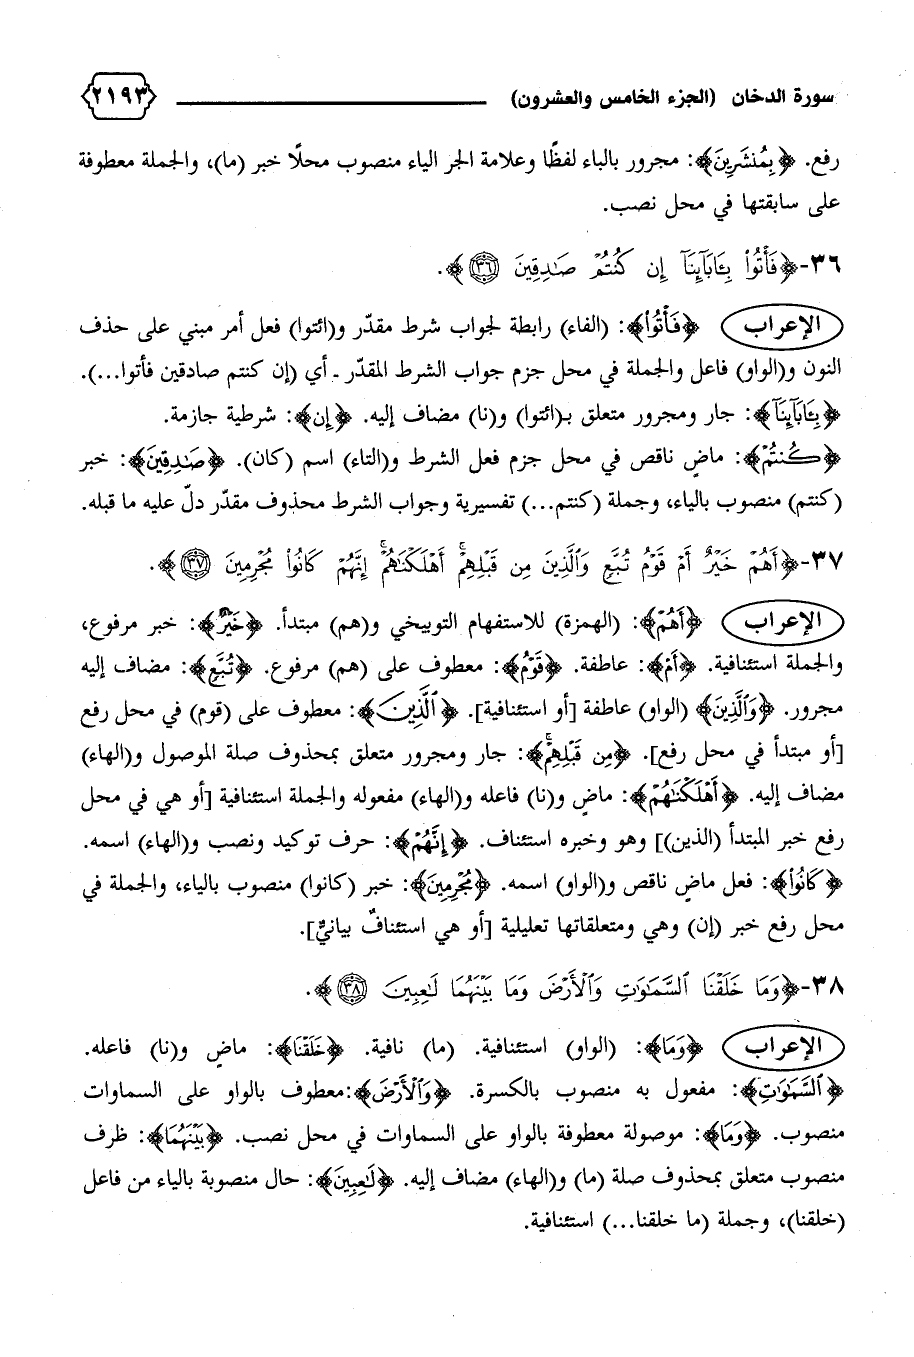 سورة الدخان (الجزء الخامس والعشرون) ٢١٩٣
رفع. ﴿بِمُنشَرِينَ﴾: مجرور بالباء لفظًا وعلامة الجر الياء منصوب محلًا خبر (ما)، والجملة معطوفة
على سابقتها في محل نصب.
٣٦-﴿فَأْتُوا۟ بِـَٔابَآئِنَآ إِن كُنتُمْ صَـٰدِقِينَ ٣٦﴾.
الإعراب ﴿فَأْتُوا۟﴾: (الفاء) رابطة لجواب شرط مقدّر و(ائتوا) فعل أمر مبني على حذف
النون و(الواو) فاعل والجملة في محل جزم جواب الشرط المقدّر ـ أي (إن كنتم صادقين فأتوا...).
﴿بِـَٔابَآئِنَآ﴾: جار ومجرور متعلق بـ(ائتوا) و(نا) مضاف إليه. ﴿إِن﴾: شرطية جازمة.
﴿كُنتُمْ﴾: ماضٍ ناقص في محل جزم فعل الشرط و(التاء) اسم (كان). ﴿صَـٰدِقِينَ﴾: خبر
(كنتم) منصوب بالياء، وجملة (كنتم...) تفسيرية وجواب الشرط محذوف مقدّر دلّ عليه ما قبله.
٣٧-﴿أَهُمْ خَيْرٌ أَمْ قَوْمُ تُبَّعٍ وَٱلَّذِينَ مِن قَبْلِهِمْ ۚ أَهْلَكْنَـٰهُمْ ۖ إِنَّهُمْ كَانُوا۟ مُجْرِمِينَ ٣٧﴾.
الإعراب ﴿أَهُمْ﴾: (الهمزة) للاستفهام التوبيخي و(هم) مبتدأ. ﴿خَيْرٌ﴾: خبر مرفوع،
والجملة استئنافية. ﴿أَمْ﴾: عاطفة. ﴿قَوْمُ﴾: معطوف على (هم) مرفوع. ﴿تُبَّعٍ﴾: مضاف إليه
مجرور. ﴿وَٱلَّذِينَ﴾ (الواو) عاطفة [أو استئنافية]. ﴿ٱلَّذِينَ﴾: معطوف على (قوم) في محل رفع
[أو مبتدأ في محل رفع]. ﴿مِن قَبْلِهِمْ ۚ﴾: جار ومجرور متعلق بمحذوف صلة الموصول و(الهاء)
مضاف إليه. ﴿أَهْلَكْنَـٰهُمْ﴾: ماضٍ و(نا) فاعله و(الهاء) مفعوله والجملة استئنافية [أو هي في محل
رفع خبر المبتدأ (الذين)] وهو وخبره استئناف. ﴿إِنَّهُمْ﴾: حرف توكيد ونصب و(الهاء) اسمه.
﴿كَانُوا۟﴾: فعل ماضٍ ناقص و(الواو) اسمه. ﴿مُجْرِمِينَ﴾: خبر (كانوا) منصوب بالياء، والجملة في
محل رفع خبر (إن) وهي ومتعلقاتها تعليلية [أو هي استئنافٌ بيانيٌ].
٣٨-﴿وَمَا خَلَقْنَا ٱلسَّمَـٰوَٰتِ وَٱلْأَرْضَ وَمَا بَيْنَهُمَا لَـٰعِبِينَ ٣٨﴾.
الإعراب ﴿وَمَا﴾: (الواو) استئنافية. (ما) نافية. ﴿خَلَقْنَا﴾: ماضٍ و(نا) فاعله.
﴿ٱلسَّمَـٰوَٰتِ﴾: مفعول به منصوب بالكسرة. ﴿وَٱلْأَرْضَ﴾:معطوف بالواو على السماوات
منصوب. ﴿وَمَا﴾: موصولة معطوفة بالواو على السماوات في محل نصب. ﴿بَيْنَهُمَا﴾: ظرف
منصوب متعلق بمحذوف صلة (ما) و(الهاء) مضاف إليه. ﴿لَـٰعِبِينَ﴾: حال منصوبة بالياء من فاعل
(خلقنا)، وجملة (ما خلقنا...) استئنافية.